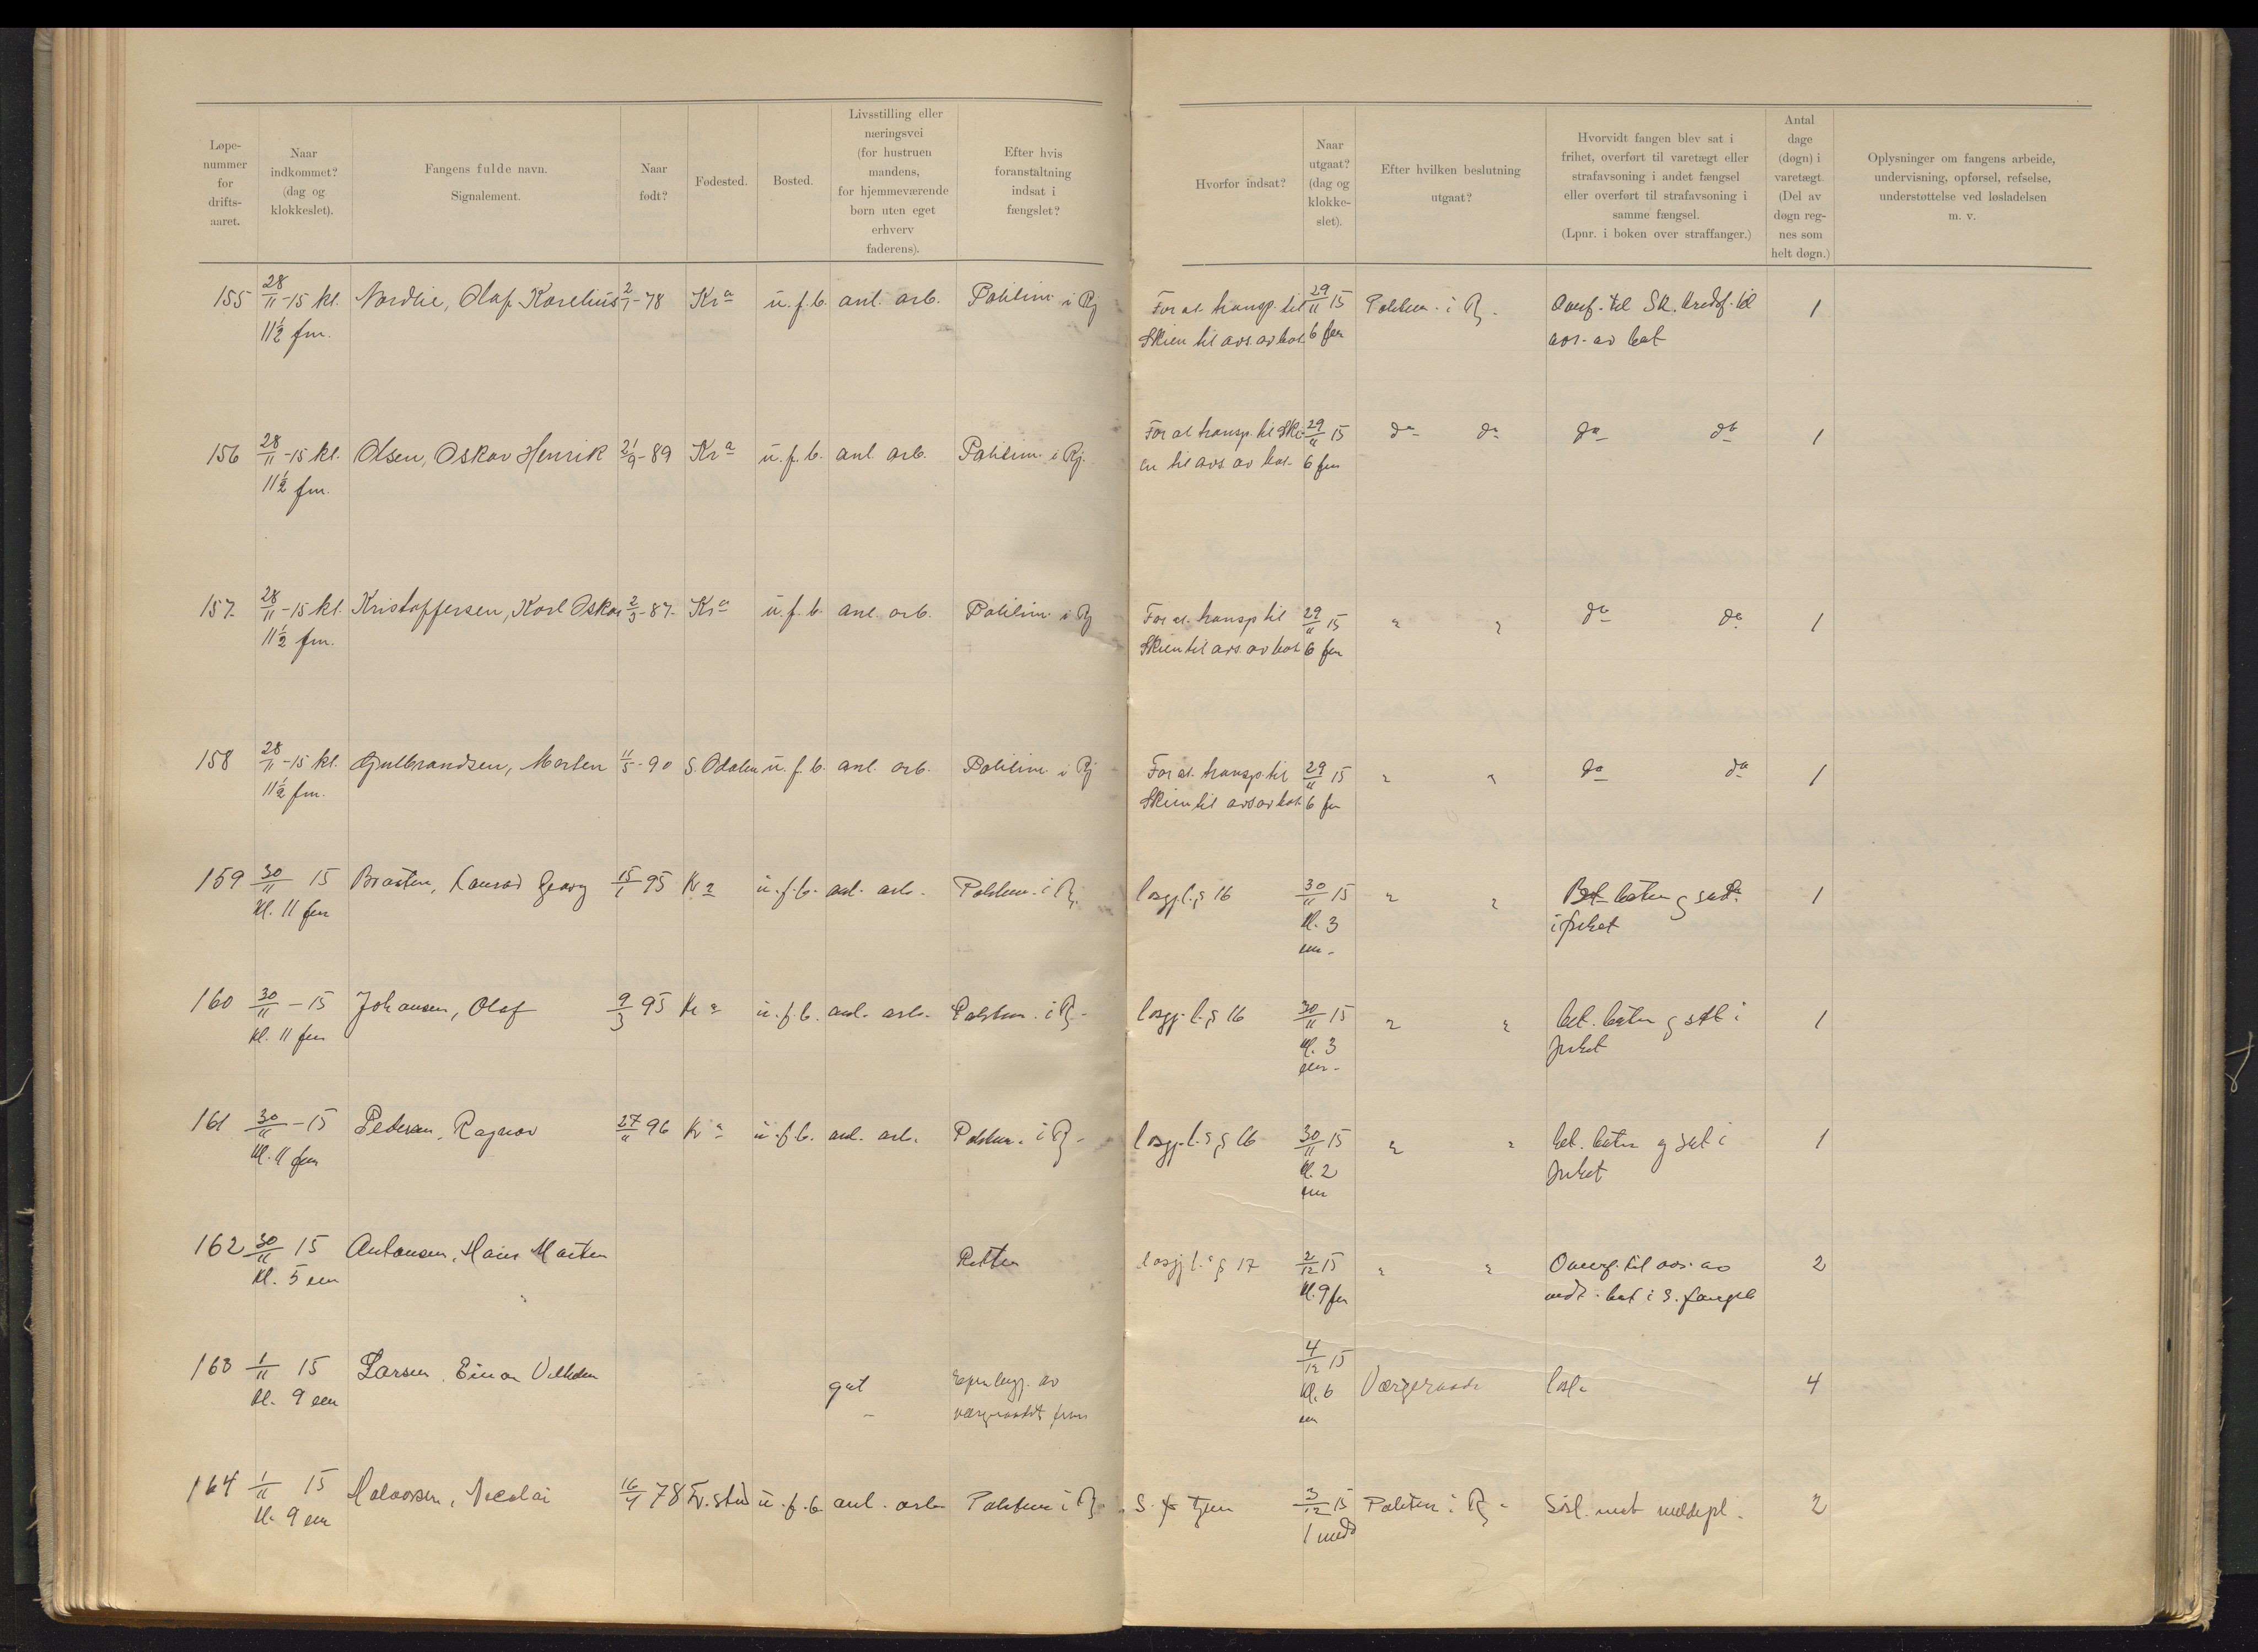 Løpe-
nummer
for
drifts-
aaret.
Naar
indkommet?
(dag og
klokkeslet).
Fangens fulde navn.
Signalement.
Naar
født?
Fødested.
Bosted.
Livsstilling eller
næringsvei
(for hustruen
mandens,
for hjemmeværende
børn uten eget
erhverv
faderens).
Efter hvis
foranstaltning
indsat i
fængslet?
Hvorfor indsat?
Naar
utgaat?
(dag og
klokke-
slet).
Efter hvilken beslutning
utgaat?
Hvorvidt fangen blev sat i
frihet, overført til varetægt eller
strafavsoning i andet fængsel
eller overført til strafavsoning i
samme fængsel.
(Lpnr. i boken over straffanger.)
Antal
dage
(døgn) i
varetægt.
(Del av
døgn reg-
nes som
helt døgn.)
Oplysninger om fangens arbeide,
undervisning, opførsel, refselse,
understøttelse ved løsladelsen
m. v.
155 28/11-15 kl. Nordlie, Olaf Karelius 2/1-78 Kra u.f.b. anl. arb. Politim. i Rj For at transp. til 29/11 15 Politim. i Rj. Overf. til Sk. kredsf. til 1
11½ fm. Skien til avs. av bot 6 fm avs. av bot
156 28/11-15 kl. Olsen, Oskar Henrik 21/9-89 Kra u.f.b. anl. arb. Politim. i Rj. For at transp. til Ski- 29/11 15 do do do do 1
11½ fm. en til avs. av bot. 6 fm
157. 28/11-15 kl. Kristoffersen, Karl Oskar 2/3-87- Kra u.f.b. anl. arb. Politim. i Rj For at. transp til 29/11 15 " " do do 1
11½ fm. Skien til avs. av bot 6 fm
158 28/11-15 kl. Gulbrandsen, Morten 11/5-90 S. Odalen u.f.b. anl. arb. Politim. i Rj For at. transp. til 29/11 15 " " do do 1
11½ fm. Skien til avs av bot. 6 fm
159 30/11 15 Braaten, Konrad Georg 15/1 95 Kra u.f.b. anl. arb. Politim. i Rj. løsgj. l. § 16 30/11 15 " " Bet. boten og sat 1
kl. 11 fm kl. 3 i frihet
em.
160 30/11-15 Johansen, Olaf 9/3 95 Kra u.f.b. anl. arb. Politim. i Rj. løsgj. l. § 16 30/11 15 " " bet. boten og sat i 1
kl. 11 fm kl. 3 frihet
em.
161 30/11-15 Pedersen, Ragnar 27/11 96 Kra u.f.b. anl. arb. Politim. i Rj. løsgj. l. § 16 30/11 15 " " bet. boten og sat i 1
kl. 11 fm kl. 2 frihet
em
162 30/11 15 Antonsen, Hans Martin Retten løsgj. l. § 17 2/12 15 " " Overf. til avs. av 2
kl. 5 em kl. 9 fm idt. bot i s. fængsel
163 1/11 15 Larsen, Einar 4/12 15
kl. 9 em gut av kl. 6 Værgeraadet løsl. 4
em
164 1/11 15 Halvorsen, Nicolai 16/4 78 u.f.b. anl. arb. Politim i Rj. 3/12 15 Politim. i Rj. løsl. mot meldepl. 2
kl. 9 em 1 midd